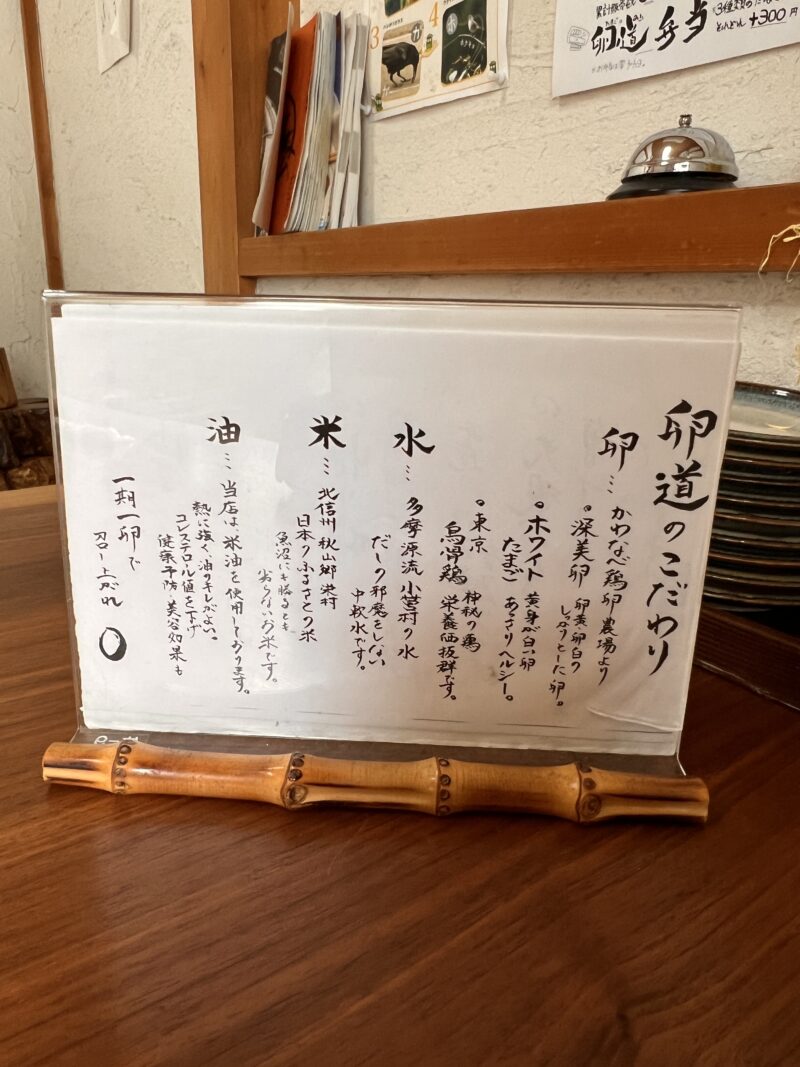 卵道のこだわり
卵… かわなべ鶏卵農場より
。深美卵 卵黄・卵白の
しっかりとした卵。
。ホワイト 黄身が白い卵
たまご あっさりヘルシー。
。東京 神秘の鶏
烏骨鶏 栄養価抜群です。
水… 多摩源流 小菅村の水
だしの邪魔をしない
中軟水です。
米… 北信州 秋山郷 栄村
日本のふるさとの米
魚沼にも勝るとも
劣らないお米です。
油… 当店は、米油を使用しております。
熱に強く、油のキレがよい。
コレステロール値を下げ
健康予防 美容効果も
一期一卵で
召し上がれ
卵道 弁当
+300円
3
4